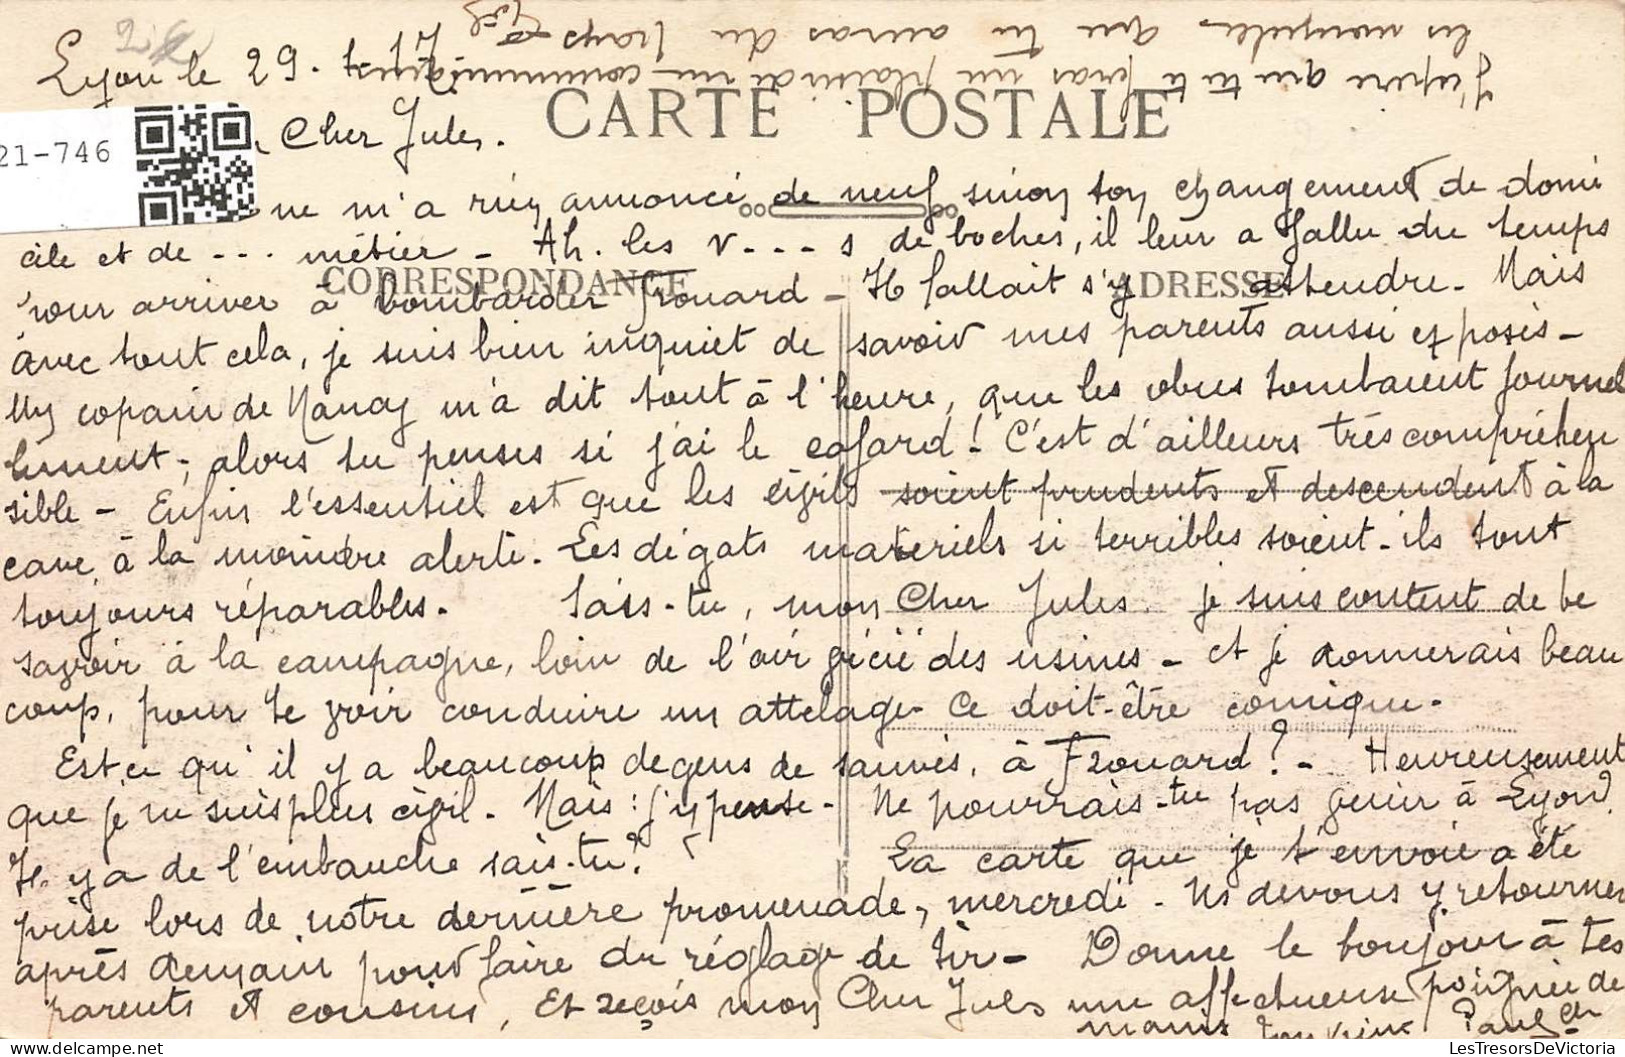 Lyon le 29.
Cher Jules.
CARTE POSTALE
21-746
ne m'a rien annoncé de neuf sinon ton changement de domi
cile et de --- métier - Ah. les v---s de boches, il leur a fallu du temps
pour arriver à bombarder Frouard - Il fallait s'y attendre. Mais
CORRESPONDANCE
ADRESSE
avec tout cela, je suis bien inquiet de savoir mes parents aussi exposés -
Un copain de Nancy m'a dit tout à l'heure, que les obus tombaient journel
lement -, alors tu penses si j'ai le cafard! C'est d'ailleurs très compréhen
sible - Enfin l'essentiel est que les civils soient prudents et descendent à la
cave, à la moindre alerte. Les dégats matériels si terribles soient-ils sont
toujours réparables. Sais-tu, mon Cher Jules, je suis content de te
savoir à la campagne, loin de l'air vicié des usines - et je donnerais beau
coup, pour te voir conduire un attelage. Ce doit-être comique.
Est ce qu'il y a beaucoup de gens de sauvés, à Frouard? - Heureusement
que je ne suis plus civil. Mais : j'y pense - Ne pourrais-tu pas venir à Lyon,
Il y a de l'embauche sais-tu? La carte que je t'envoie a été
prise lors de notre dernière promenade, mercredi. Ns devons y retourner
après demain pour faire du réglage de tir - Donne le bonjour à tes
parents et cousins, Et reçois mon Cher Jules une affectueuse poignée de
mains ton vieux Paul
J'espère que tu te feras un plaisir de me communiquer
les nouvelles que tu auras du pays
LesTresorsDeVictoria.com